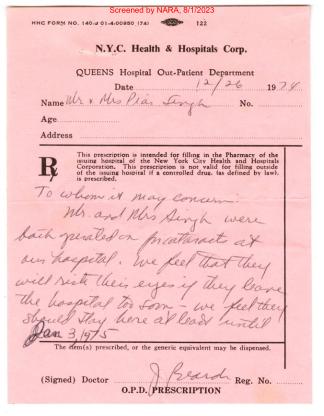 Screened by NARA, 8/1/2023
HHC FORM NO. 140-d 01-4-00950 (74) 122
N.Y.C. Health & Hospitals Corp.
QUEENS Hospital Out-Patient Department
Date 12/26 1974
Name Mr & Mrs Piar Singh No.
Age
Address
Rx
This prescription is intended for filling in the Pharmacy of the
issuing hospital of the New York City Health and Hospitals
Corporation. This prescription is not valid for filling outside
of the issuing hospital if a controlled drug, (as defined by law),
is prescribed.
To whom it may concern:
Mr. and Mrs Singh were
both operated on for cataracts at
our hospital. We feel that they
will risk their eyes if they leave
the hospital too soon - we feel they
should stay here at least until
Jan 3, 1975
The item(s) prescribed, or the generic equivalent may be dispensed.
(Signed) Doctor J Beard Reg. No.
O.P.D. PRESCRIPTION